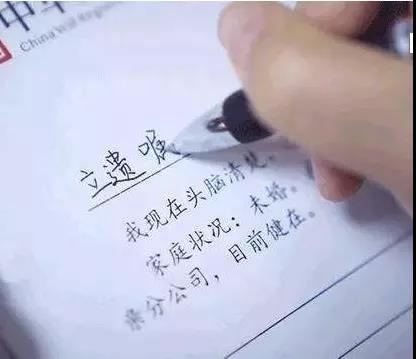 中华
China Will Regist
立遗嘱
我现在头脑清楚。
家庭状况：未婚。
亲分公司，目前健在。